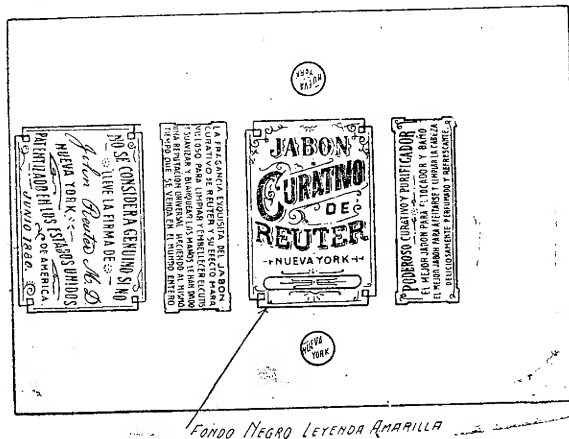 NUEVA
YORK
NO SE CONSIDERA GENUINO SI NO
LLEVE LA FIRMA DE
John Reuter M.D.
NUEVA YORK.
PATENTIZADO EN LOS ESTADOS UNIDOS
DE AMERICA.
JUNIO 1880.
LA FRAGANCIA EXQUISITA DEL JABON
CURATIVO DE REUTER Y SU EFECTO MARA
VILLOSO PARA LIMPIAR Y EMBELLECER EL CUTIS
Y SUAVIZAR Y BLANQUEAR LAS MANOS LE HAN DADO
UNA REPUTACION UNIVERSAL HACIENDO AL MISMO
TIEMPO QUE SE VENDA EN EL MUNDO ENTERO
JABON
CURATIVO
DE
REUTER
NUEVA YORK
PODEROSO CURATIVO Y PURIFICADOR
EL MEJOR JABON PARA EL TOCADOR Y BAÑO
EL MEJOR JABON PARA AFEITARSE Y LIMPIAR LA CABEZA
DELICIOSAMENTE PERFUMADO Y REFRESCANTE.
NUEVA
YORK
FONDO NEGRO LEYENDA AMARILLA